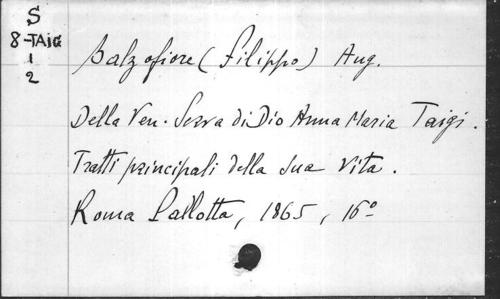 S
8-TAIG
1
2
Balzofiore (Filippo) Aug.
Della Ven. Serva di Dio Anna Maria Taigi.
Tratti principali della sua vita.
Roma Pallotta, 1865, 16°